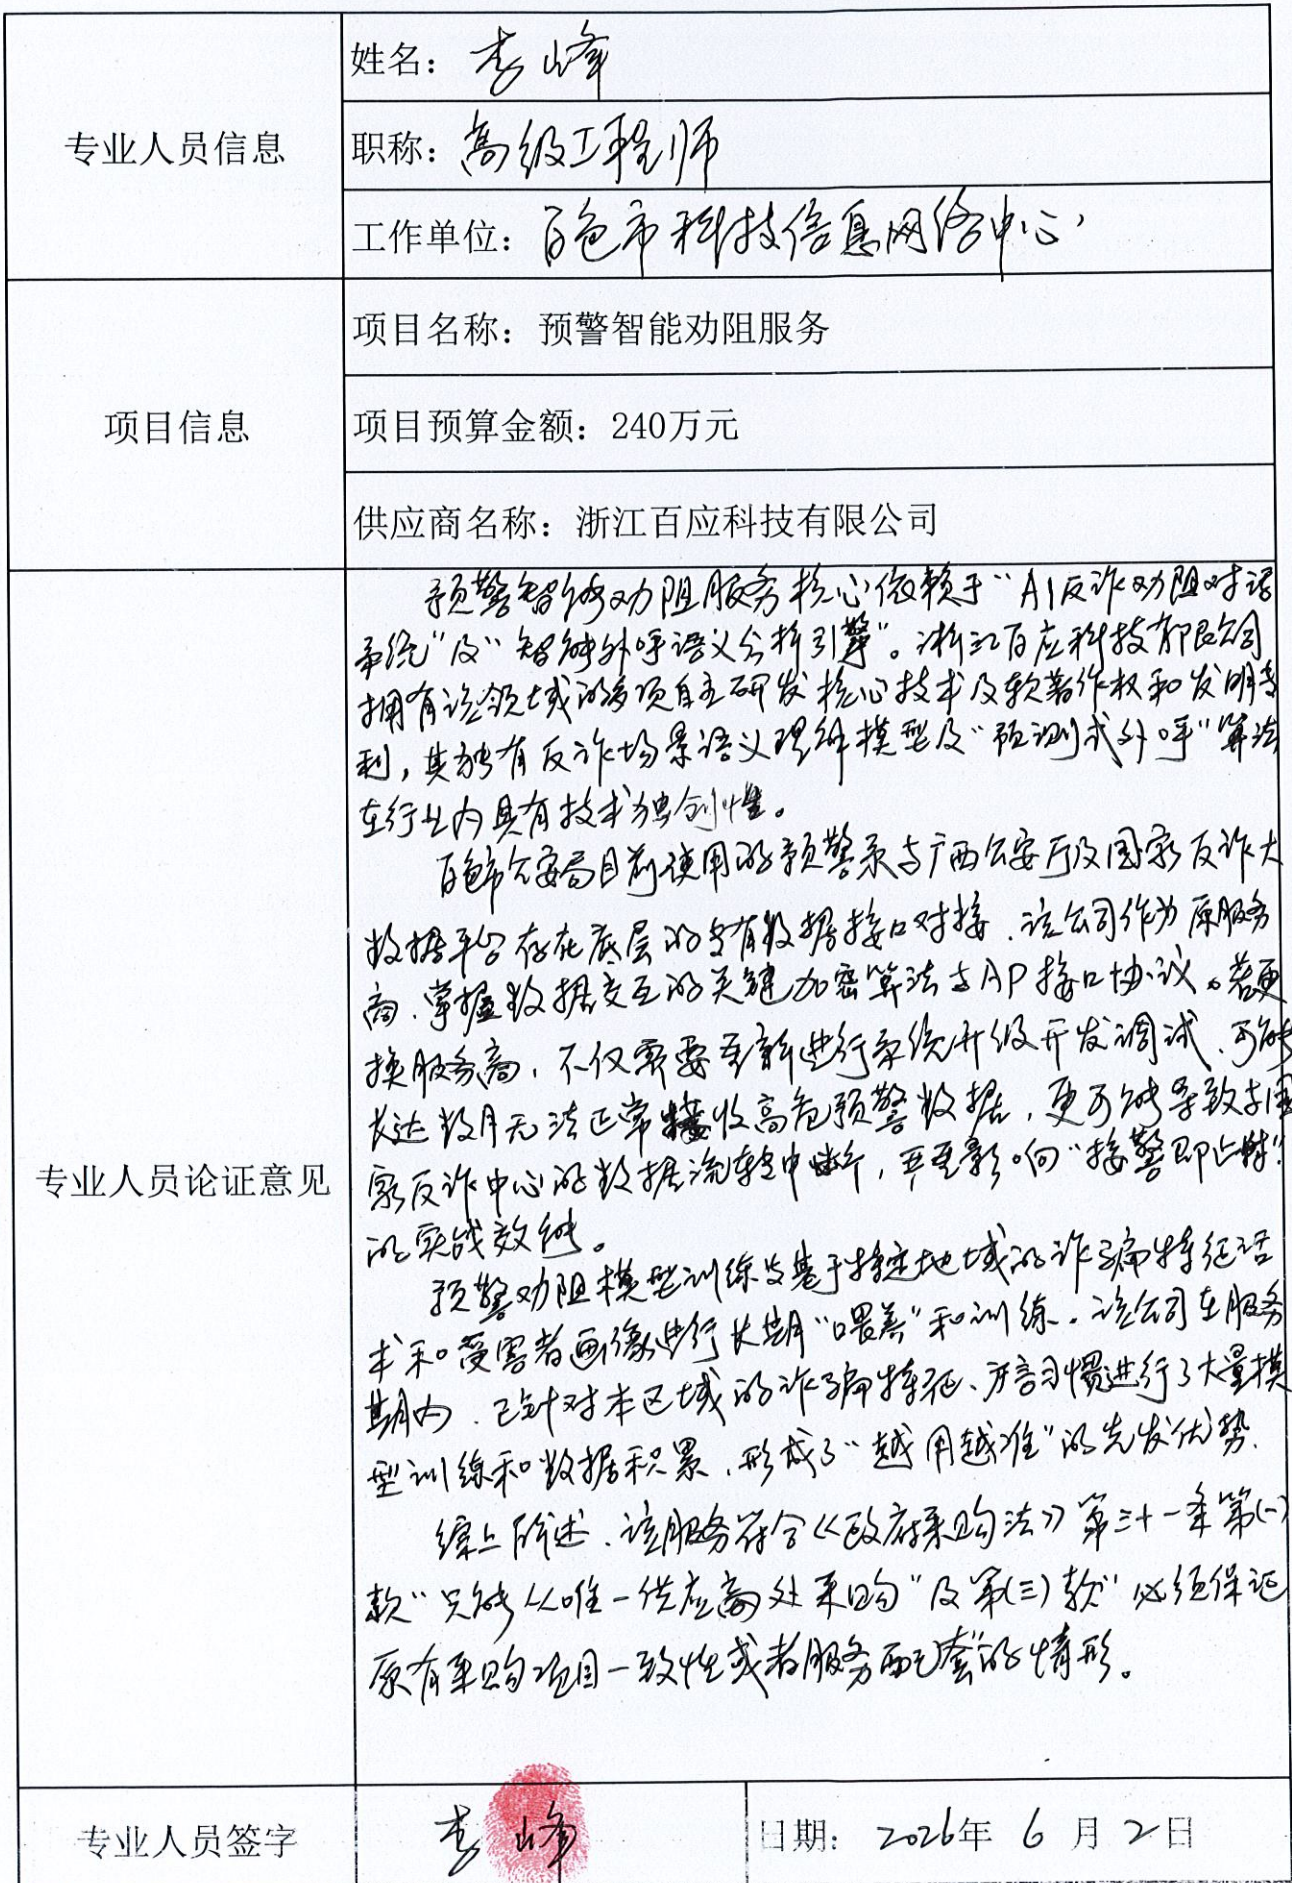 专业人员信息
姓名：李峰
职称：高级工程师
工作单位：百色市科技信息网络中心
项目信息
项目名称：预警智能劝阻服务
项目预算金额：240万元
供应商名称：浙江百应科技有限公司
专业人员论证意见
预警智能劝阻服务核心依赖于“AI反诈劝阻对话
系统”及“智能外呼语义分析引擎”。浙江百应科技有限公司
拥有该领域的多项自主研发核心技术及软著作权和发明专
利，其独有反诈场景语义理解模型及“预测式外呼”算法
在行业内具有技术独创性。
百色市公安局目前使用的预警系与广西公安厅及国家反诈大
数据平台存在底层的专有数据接口对接，该公司作为原服务
商，掌握数据交互的关键加密算法与AP接口协议。若更
换服务商，不仅需要重新进行系统升级开发调试，可能
长达数月无法正常接收高危预警数据，更可能导致与国
家反诈中心的数据流转中断，严重影响“接警即止付”
的实战效能。
预警劝阻模型训练需基于特定地域的诈骗特征话
术和受害者画像进行长期“喂养”和训练。该公司在服务
期内，已针对本区域的诈骗特征、方言习惯进行了大量模
型训练和数据积累，形成了“越用越准”的先发优势。
综上所述，该服务符合《政府采购法》第三十一条第(一)
款“只能从唯一供应商处采购”及第(三)款“必须保证
原有采购项目一致性或者服务配套”的情形。
专业人员签字
李峰
日期：2026年6月2日